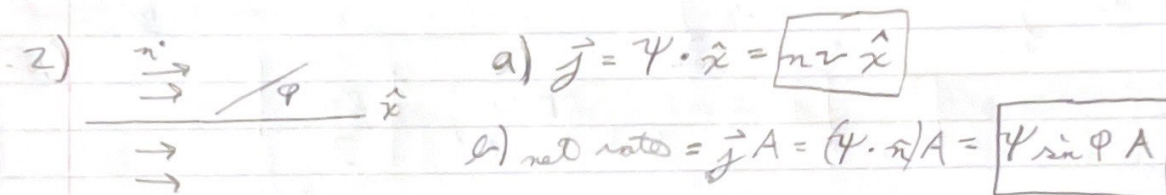 2) n → → → → φ x̂
a) j⃗ = Ψ · x̂ = n v x̂
b) net rate = j⃗ A = (Ψ · n̂)A = Ψ sin φ A